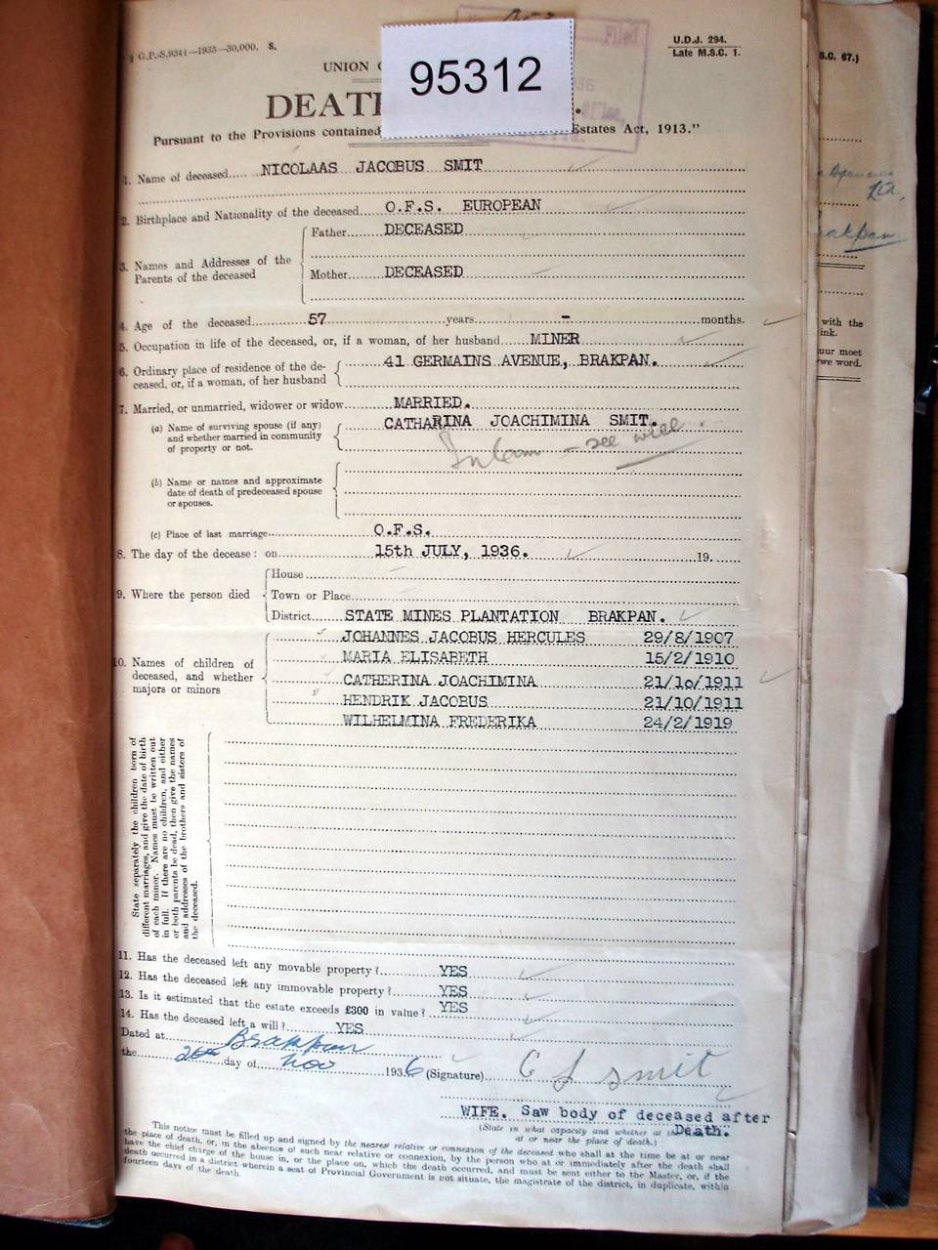 G.P.-S.9341—1935—30,000. S.
Filed
U.D.J. 294.
Late M.S.C. 1.
95312
UNION
DEAT
Pursuant to the Provisions contained Estates Act, 1913."
1. Name of deceased NICOLAAS JACOBUS SMIT
2. Birthplace and Nationality of the deceased O.F.S. EUROPEAN
3. Names and Addresses of the Parents of the deceased
Father DECEASED
Mother DECEASED
4. Age of the deceased 57 years - months.
5. Occupation in life of the deceased, or, if a woman, of her husband MINER
6. Ordinary place of residence of the de-
ceased, or, if a woman, of her husband
41 GERMAINS AVENUE, BRAKPAN.
7. Married, or unmarried, widower or widow MARRIED.
(a) Name of surviving spouse (if any)
and whether married in community
of property or not.
CATHARINA JOACHIMINA SMIT.
In Com - see will.
(b) Name or names and approximate
date of death of predeceased spouse
or spouses.
(c) Place of last marriage O.F.S.
8. The day of the decease: on 15th JULY, 1936. 19
9. Where the person died
House
Town or Place
District STATE MINES PLANTATION BRAKPAN.
10. Names of children of
deceased, and whether
majors or minors
JOHANNES JACOBUS HERCULES 29/8/1907
MARIA ELISABETH 15/2/1910
CATHERINA JOACHIMINA 21/10/1911
HENDRIK JACOBUS 21/10/1911
WILHELMINA FREDERIKA 24/2/1919
State separately the children born of
different marriages, and give the date of birth
of each minor. Names must be written out
in full. If there are no children, and either
or both parents be dead, then give the names
and addresses of the brothers and sisters of
the deceased.
11. Has the deceased left any movable property? YES
12. Has the deceased left any immovable property? YES
13. Is it estimated that the estate exceeds £300 in value? YES
14. Has the deceased left a will? YES
Dated at Brakpan
the 26th day of Nov 1936 (Signature) C J Smit
WIFE. Saw body of deceased after
Death.
(State in what capacity and whether at the
at or near the place of death.)
This notice must be filled up and signed by the nearest relative or connexion of the deceased who shall at the time be at or near
the place of death, or, in the absence of such near relative or connexion, by the person who at or immediately after the death shall
have the chief charge of the house in, or the place on, which the death occurred, and must be sent either to the Master, or, if the
death occurred in a district wherein a seat of Provincial Government is not situate, the magistrate of the district, in duplicate, within
fourteen days of the death.
S.C. 67.)
Ltd.
with the
ink.
uur moet
we word.